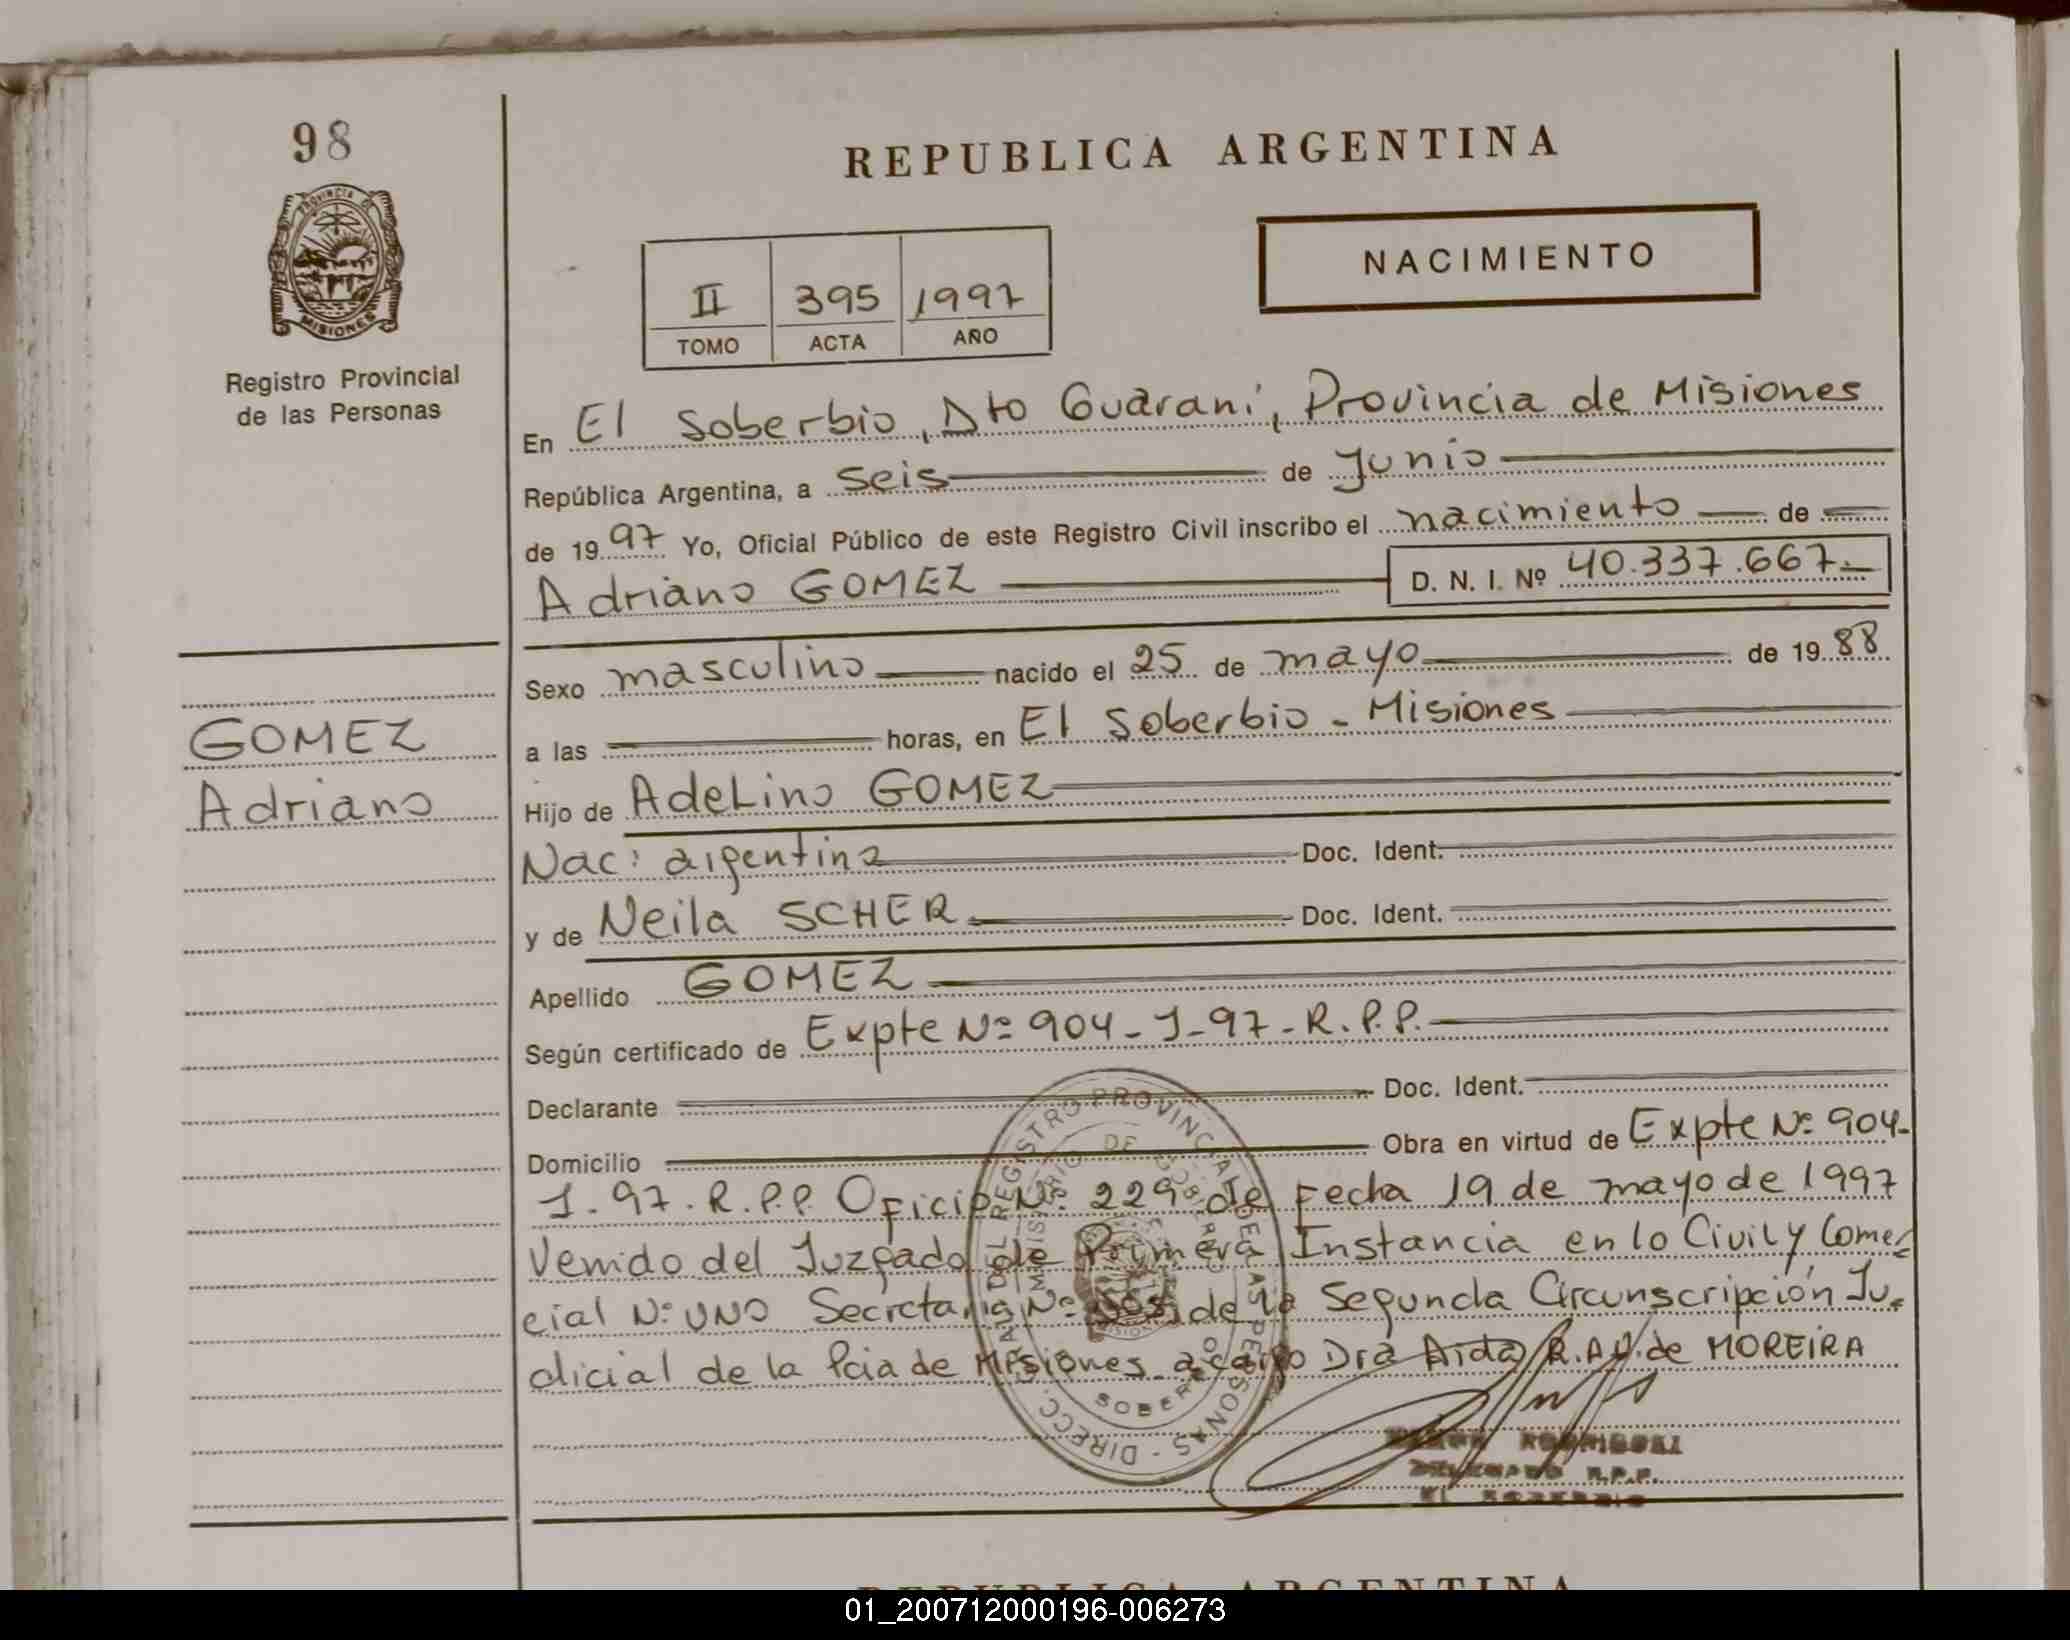 98
PROVINCIA DE
MISIONES
Registro Provincial
de las Personas
REPUBLICA ARGENTINA
II 395 1997
TOMO ACTA AÑO
NACIMIENTO
En El Soberbio, Dto Guarani, Provincia de Misiones
República Argentina, a seis de Junio
de 1997 Yo, Oficial Público de este Registro Civil inscribo el nacimiento de
Adriano GOMEZ D. N. I. Nº 40.337.667.
Sexo masculino nacido el 25 de mayo de 1988
GOMEZ
Adriano
a las horas, en El Soberbio - Misiones
Hijo de Adelino GOMEZ
Nac: argentina Doc. Ident.
y de Neila SCHER Doc. Ident.
Apellido GOMEZ
Según certificado de Expte Nº 904-J-97-R.P.P.
Declarante Doc. Ident.
Domicilio Obra en virtud de Expte Nº 904-
J-97.R.P.P. Oficio Nº 229 de Fecha 19 de mayo de 1997
Venido del Juzgado de Primera Instancia en lo Civil y Comer
cial Nº UNO Secretaria Nº Dos de la Segunda Circunscripción Ju
dicial de la Pcia de Misiones a cargo Dra Aida R.A.V. de MOREIRA
DIRECC. GRAL. DEL REGISTRO PROVINCIAL DE LAS PERSONAS
MINISTERIO DE GOBIERNO
SOBERBIO
RODRIGUEZ
DELEGADO R.P.P.
EL SOBERBIO
REPUBLICA ARGENTINA
01_200712000196-006273